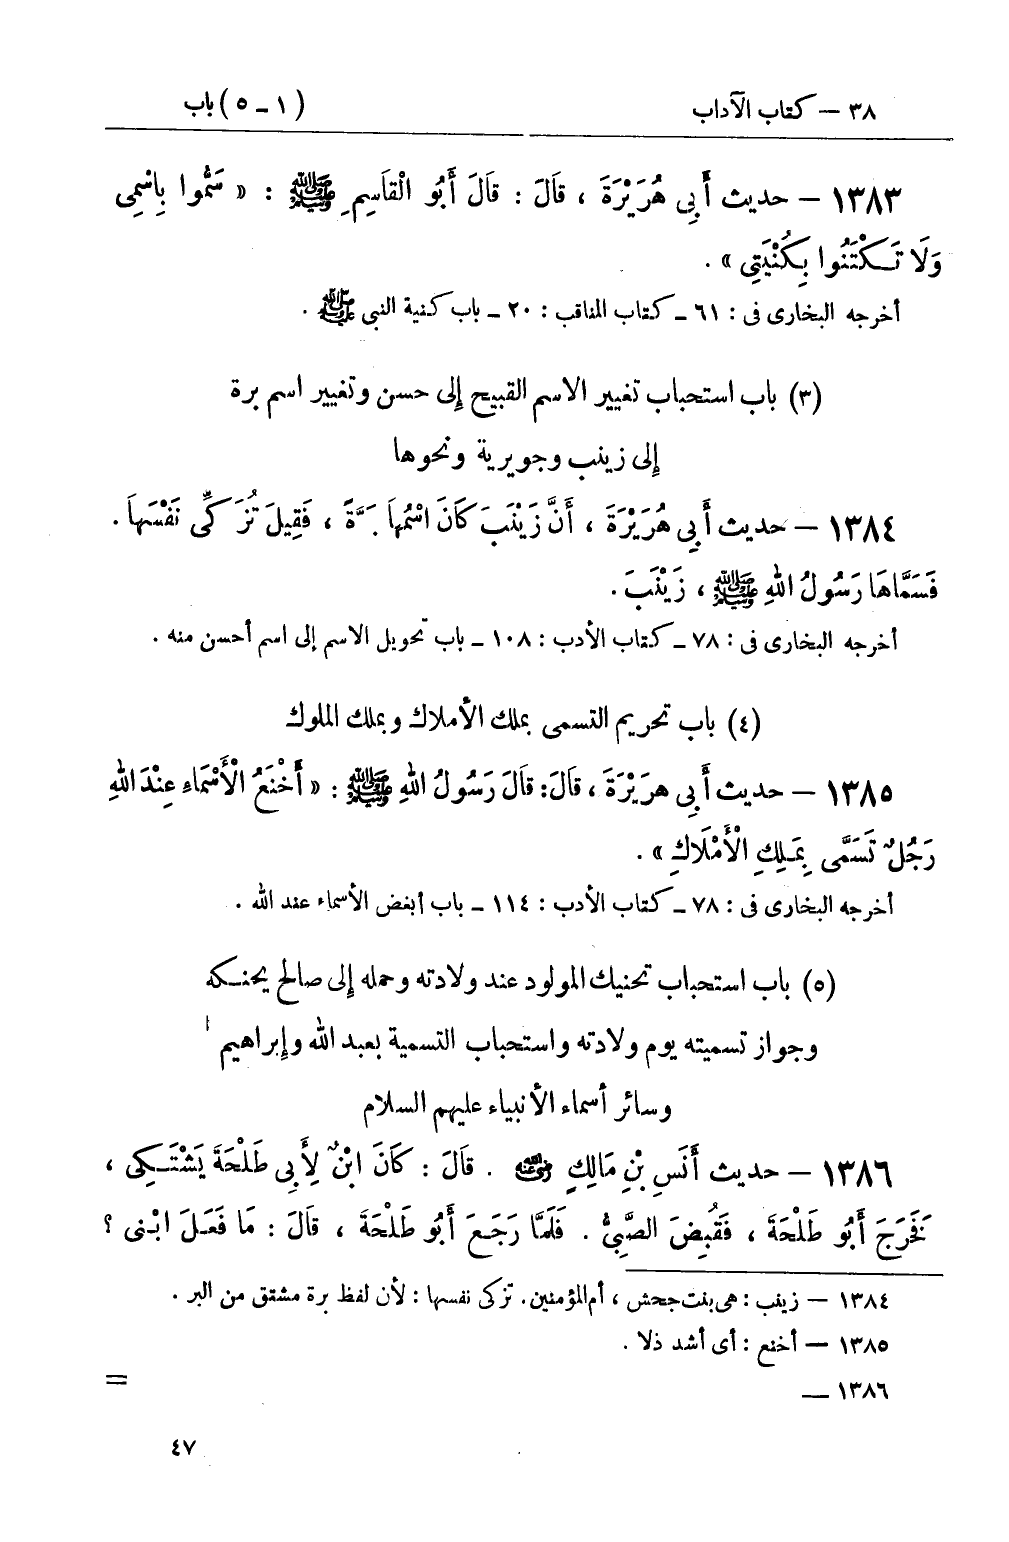 ٣٨ — كتاب الآداب (١ - ٥) باب
١٣٨٣ — حديث أَبِي هُرَيْرَةَ ، قَالَ : قَالَ أَبُو الْقَاسِمِ ﷺ : « سَمُّوا بِاسْمِى
وَلَا تَكْتَنُوا بِكُنْيَتِي » .
أخرجه البخارى فى : ٦١ ـ كتاب المناقب : ٢٠ ـ باب كنية النبى ﷺ .
(٣) باب استحباب تغيير الاسم القبيح إلى حسن وتغيير اسم برة
إلى زينب وجويرية ونحوها
١٣٨٤ — حديث أَبِي هُرَيْرَةَ ، أَنَّ زَيْنَبَ كَانَ اسْمُهَا بَرَّةَ ، فَقِيلَ تُزَكِّى نَفْسَهَا .
فَسَمَّاهَا رَسُولُ اللهِ ﷺ ، زَيْنَبَ .
أخرجه البخارى فى : ٧٨ ـ كتاب الأدب : ١٠٨ ـ باب تحويل الاسم إلى اسم أحسن منه .
(٤) باب تحريم التسمى بملك الأملاك وبملك الملوك
١٣٨٥ — حديث أَبِي هرَيْرَةَ ، قَالَ: قَالَ رَسُولُ اللهِ ﷺ : « أَخْنَعُ الْأَسْمَاءِ عِنْدَ اللهِ
رَجُلٌ تَسَمَّى بِمَلِكِ الْأَمْلَاكِ » .
أخرجه البخارى فى : ٧٨ ـ كتاب الأدب : ١١٤ ـ باب أبغض الأسماء عند الله .
(٥) باب استحباب تحنيك المولود عند ولادته وحمله إلى صالح يحنكه
وجواز تسميته يوم ولادته واستحباب التسمية بعبد الله وإبراهيم
وسائر أسماء الأنبياء عليهم السلام
١٣٨٦ — حديث أَنَسِ بْنِ مَالِكٍ رضي الله عنه . قَالَ : كَانَ ابْنٌ لِأَبِي طَلْحَةَ يَشْتَكِى ،
فَخَرَجَ أَبُو طَلْحَةَ ، فَقُبِضَ الصَّبِىُّ . فَلَمَّا رَجَعَ أَبُو طَلْحَةَ ، قَالَ : مَا فَعَلَ ابْنِى ؟
١٣٨٤ — زينب : هى بنت جحش ، أم المؤمنين . تزكى نفسها : لأن لفظ برة مشتق من البر .
١٣٨٥ — أخنع : أى أشد ذلا .
١٣٨٦ — =
٤٧